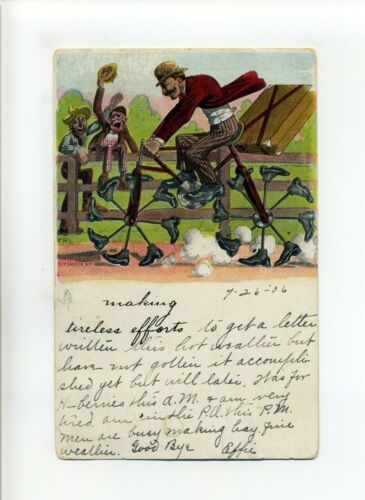 7-26-06
making
tireless efforts to get a letter
written this hot weather but
have not gotten it accompli
shed yet but will later. Was for
H-berries this A.M. & am very
tired. am in the P.O. this P.M.
men are busy making hay. fine
weather. Good Bye Effie